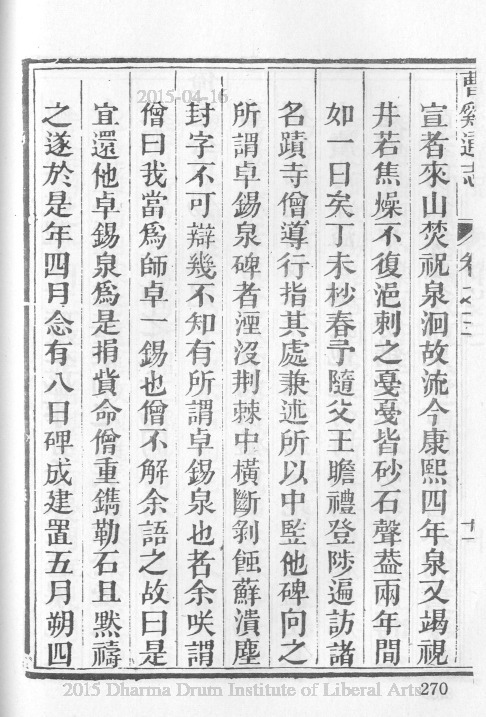 曹谿通志
卷之三
十一
宣者來山焚祝泉洄故流今康熙四年泉又竭視
井若焦燥不復浥刺之戞戞皆砂石聲葢兩年間
如一日矣丁未杪春予隨父王瞻禮登陟遍訪諸
名蹟寺僧導行指其處兼述所以中監他碑向之
所謂卓錫泉碑者湮沒荆棘中橫斷剝蝕蘚潰塵
封字不可辯幾不知有所謂卓錫泉也者余咲謂
僧曰我當爲師卓一錫也僧不解余語之故曰是
宜還他卓錫泉爲是捐貲命僧重鐫勒石且默禱
之遂於是年四月念有八日碑成建置五月朔四
2015-04-16
2015 Dharma Drum Institute of Liberal Arts
270